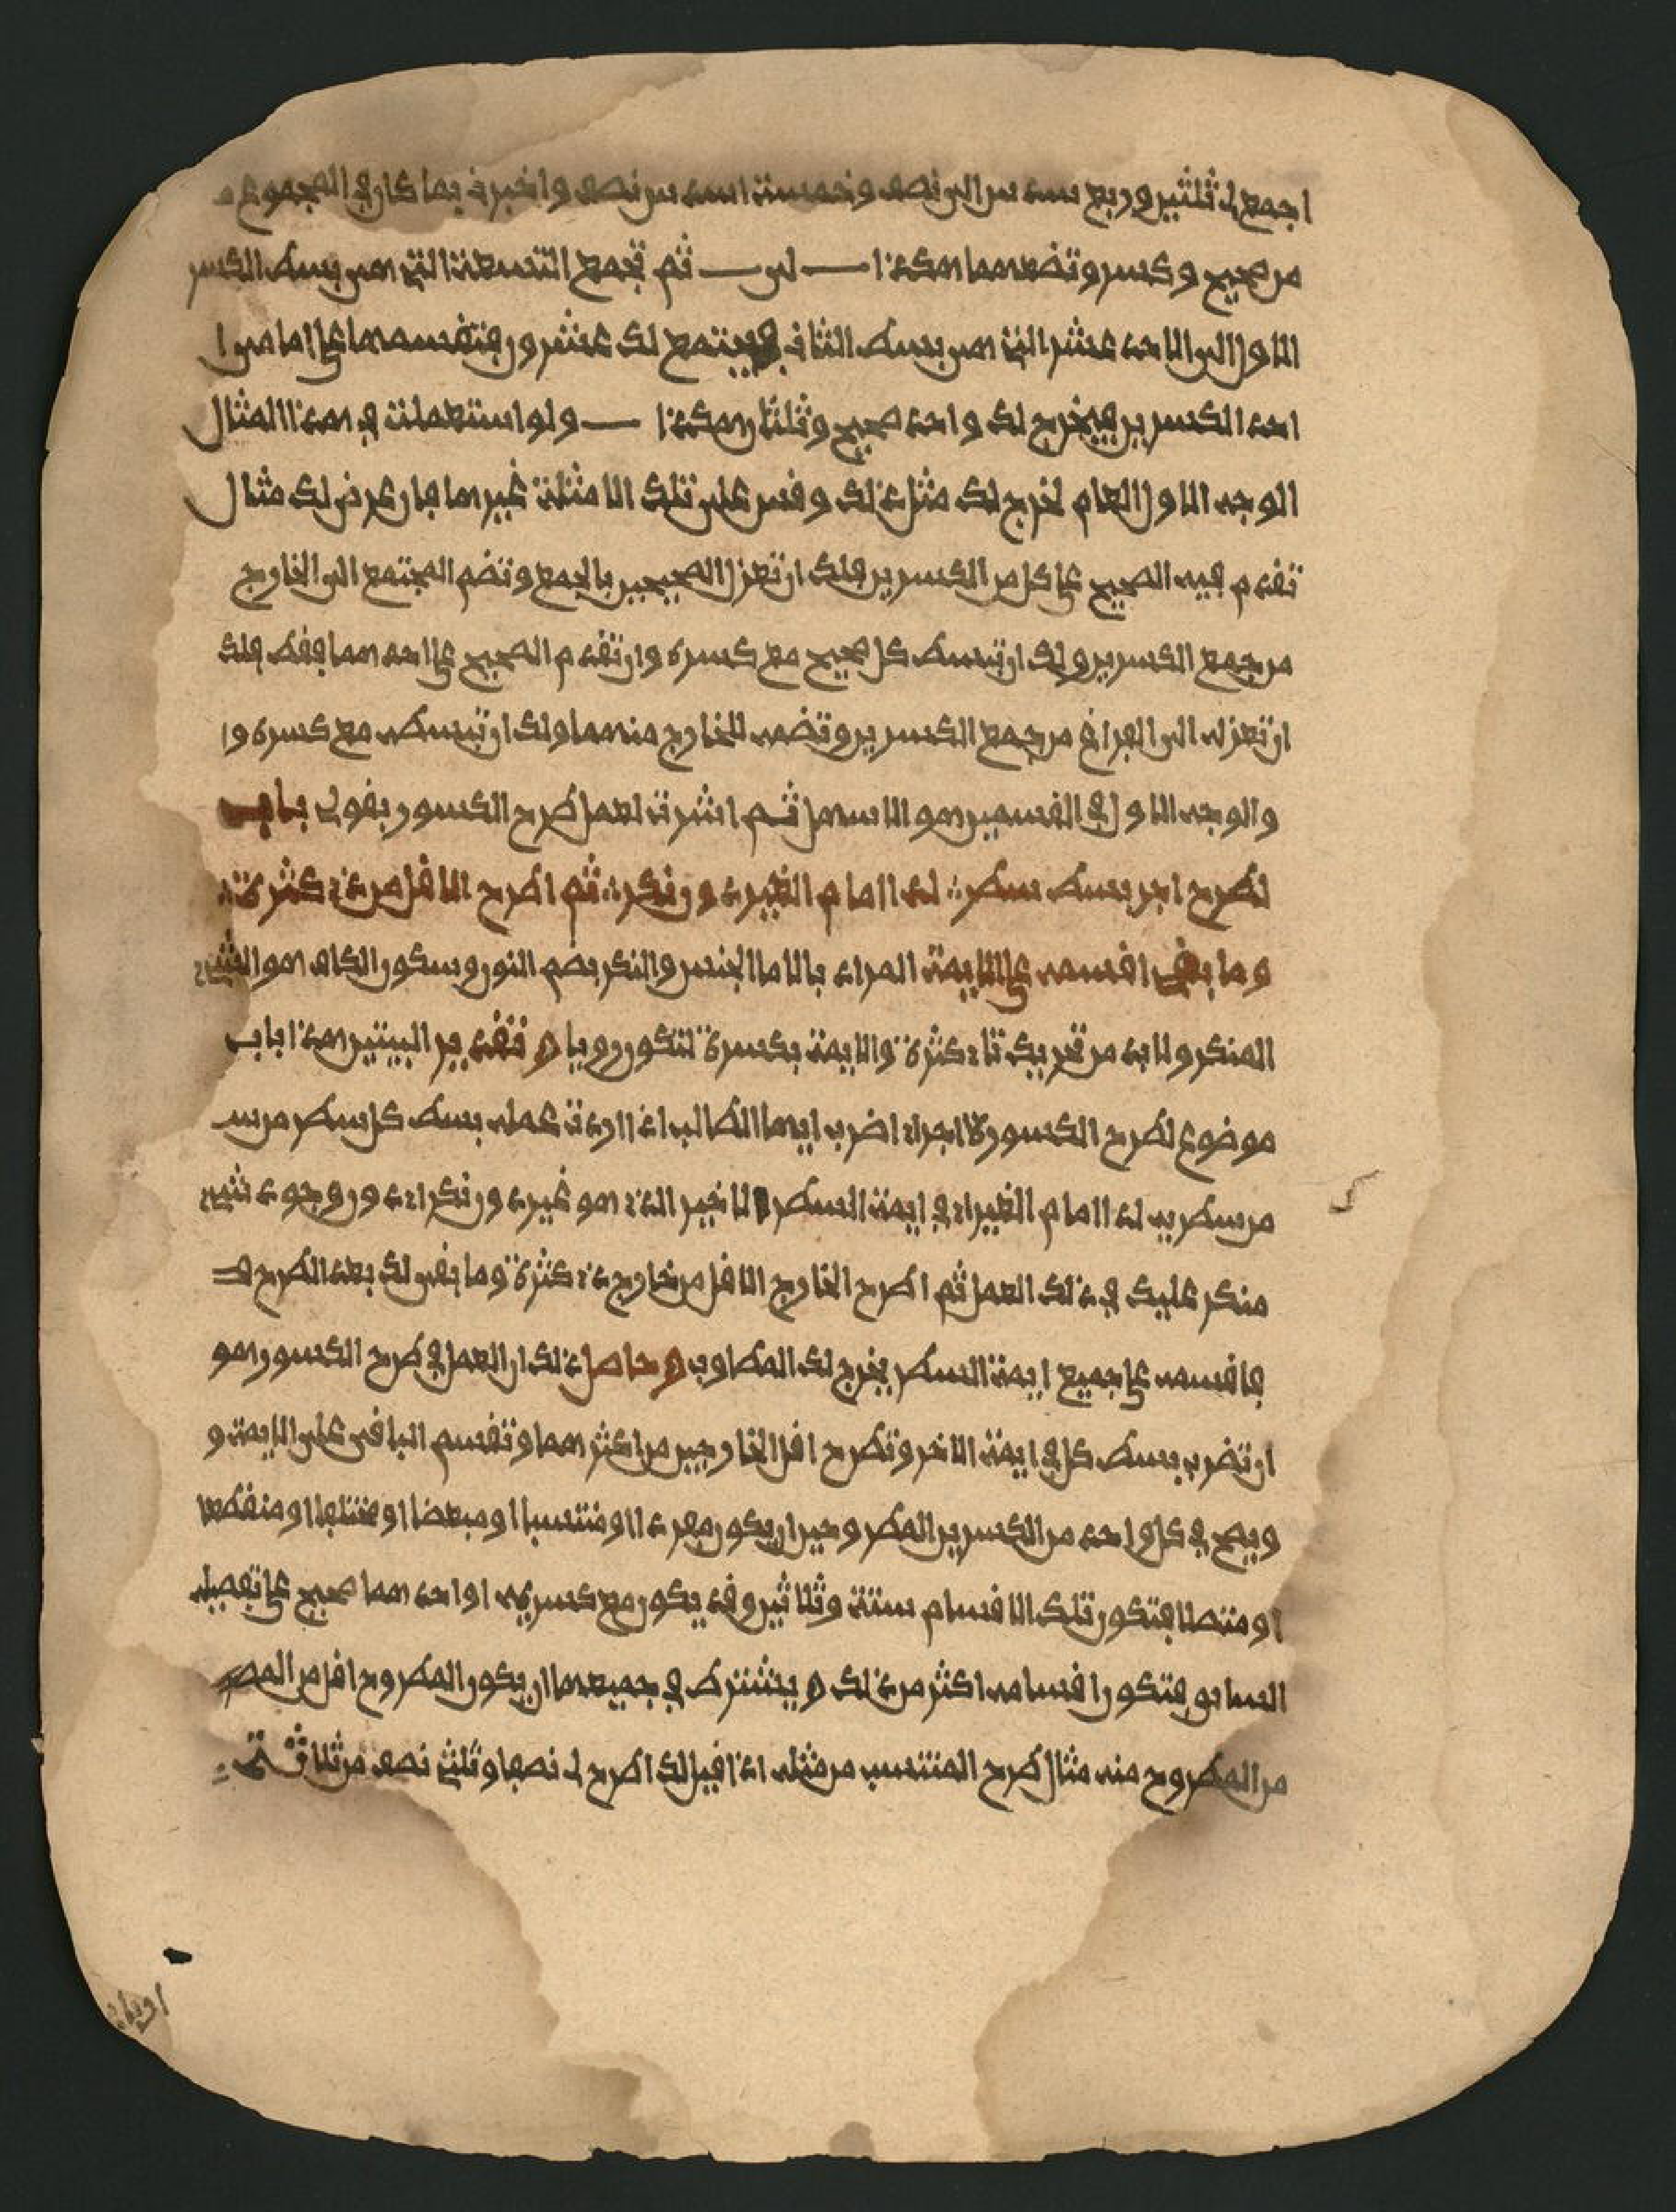 اجمع لي ثلثين وربع سدس الى نصف وخمسة اسداس نصف واخبرني بما كان في المجموع
من صحيح وكسر وتضعهما هكذا ثم تجمع التسعة التي هي بسط الكسر
الاول الى الاحد عشر التي هي بسط الثاني فيجتمع لك عشرون فتقسمها على امامي ا
احد الكسرين فيخرج لك واحد صحيح وثلثان هكذا ولو استعملت في هذا المثال
الوجه الاول العام لخرج لك مثل ذلك وقس على تلك الامثلة غيرها فان عرض لك مثال
تقدم فيه الصحيح على كل من الكسرين فلك ان تعزل الصحيحين بالجمع وتضم المجتمع الى الخارج
من جمع الكسرين ولك ان تبسط كل صحيح مع كسره وان تقدم الصحيح على احدهما فقط فلك
ان تعزله الى الفراغ من جمع الكسرين وتضمه للخارج منهما ولك ان تبسطه مع كسره وا
والوجه الاول في القسمين هو الاسهل ثم اشرت لعمل طرح الكسور بقولي باب
لطرح اجر بسط سطر لدا امام الغير دون نكر ثم اطرح الاقل من ذي كثرة
وما بقي اقسمه على الايمة المراد بالاما الجنس والنكر بضم النون وسكون الكاف هو الشيء
المنكر ولا بد من تحريك تاء كثرة والايمة بكسرة لتكون رويا فتقدير البيتين هذا باب
موضوع لطرح الكسور اجراء اضرب ايها الطالب اذا اردت عمله بسط كل سطر من س
من سطريه لدا امام الغير اي في ايمة السطر الاخير الذي هو غيره دون نكر اي دون وجود شيء
منكر عليك في ذلك العمل ثم اطرح الخارج الاقل من خارج ذي كثرة وما بقي لك بعد الطرح
فاقسمه على جميع ايمة السطر يخرج لك المطلوب حاصل ذلك ان العمل في طرح الكسور هو
ان تضرب بسط كل في ايمة الاخر وتطرح اقل الخارجين من اكثرهما وتقسم الباقي على الايمة و
ويصح في كل واحد من الكسرين المطروحين ان يكون مفردا او منتسبا او مبعضا او مختلفا او منقطعا
او متصلا فتكون تلك الاقسام ستة وثلاثين وقد يكون مع كسريه او احدهما صحيح على تفصيله
السابق فتكون اقسامه اكثر من ذلك ويشترط في جميعها ان يكون المطروح اقل من المط
من المطروح منه مثال طرح المنتسب من مثله اذا قيل لك اطرح لي نصفا وثلث نصف من ثلاثة